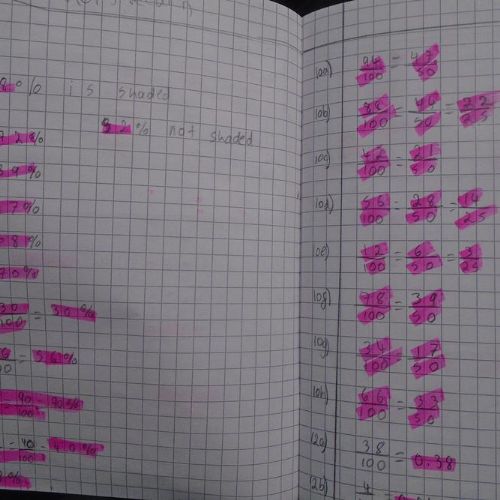 % is shaded
92% not shaded
72%
39%
17%
70%
30/100 = 30%
= 56%
40/100 = 40%
10a) 94/100 = 47/50
10b) 88/100 = 44/50 = 22/25
10c) 42/100 = 21/50
10d) 56/100 = 28/50 = 14/25
10e) 12/100 = 6/50 = 3/25
10f) 78/100 = 39/50
10g) 34/100 = 17/50
10h) 66/100 = 33/50
12a) 38/100 = 0.38
12b) 4